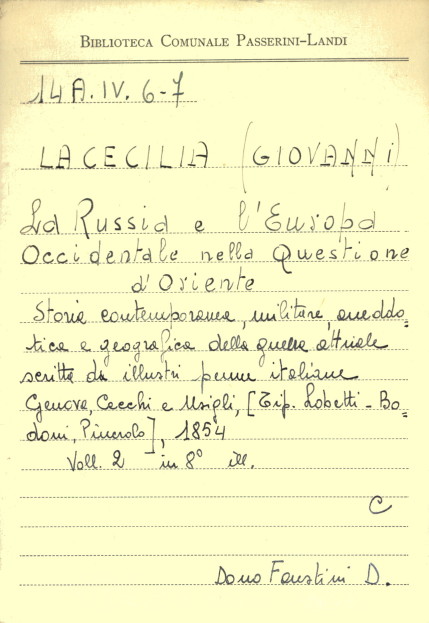 BIBLIOTECA COMUNALE PASSERINI-LANDI
14 A. IV. 6-7
LA CECILIA (GIOVANNI)
La Russia e l'Europa
Occidentale nella Questione
d'Oriente
Storia contemporanea, militare, aneddo=
tica e geografica della guerra attuale
scritta da illustri penne italiane
Genova, Cecchi e Usigli, [Tip. Lobetti-Bo=
doni, Pinerolo], 1854
Voll. 2 in 8° ill.
C
Dono Faustini D.